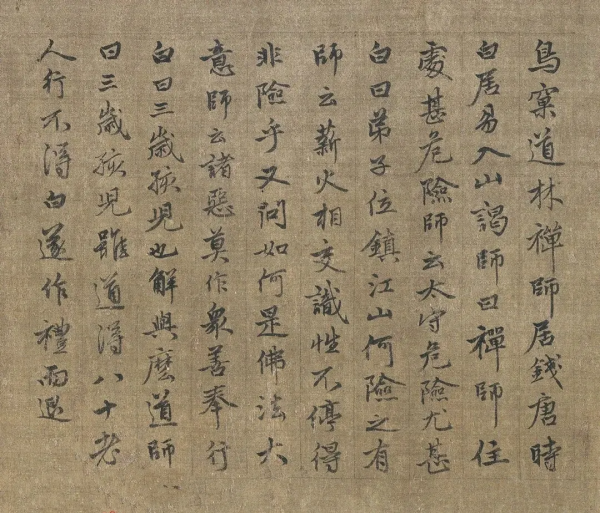 鳥窠道林禪師居錢唐時
白居易入山謁師曰禪師住
處甚危險師云太守危險尤甚
白曰弟子位鎮江山何險之有
師云薪火相交識性不停得
非險乎又問如何是佛法大
意師云諸惡莫作衆善奉行
白曰三歲孩児也解與麼道師
曰三歲孩児雖道得八十老
人行不得白遂作禮而退